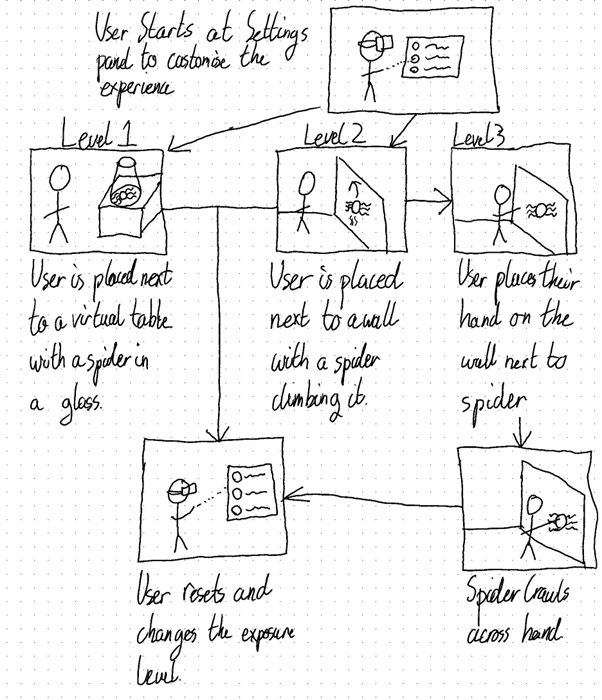 User Starts at Settings
panel to customise the
experience
Level 1
Level 2
Level 3
User is placed next
to a virtual table
with a spider in
a glass.
User is placed
next to a wall
with a spider
climbing it.
User places their
hand on the
wall next to
spider
User resets and
changes the exposure
level.
Spider Crawls
across hand.